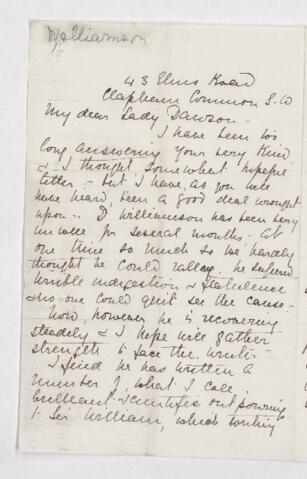 Williamson
43 Elms Road
Clapham Common S.W
My dear Lady Dawson.
I have been too
long answering your very kind
& I thought somewhat hopeful
letter – but I have, as you will
have heard, been a good deal wrought
upon – Dr Williamson has been very
unwell for several months, at
one time so much so we hardly
thought he could rally. he suffered
terrible indigestion & flatulence
& no one could quite see the cause.
Now, however he is recovering
steadily & I hope will gather
strength to face the winter.
I find he has written a
number of, what I call,
brilliant scientific out pouring
to Sir William, which writing